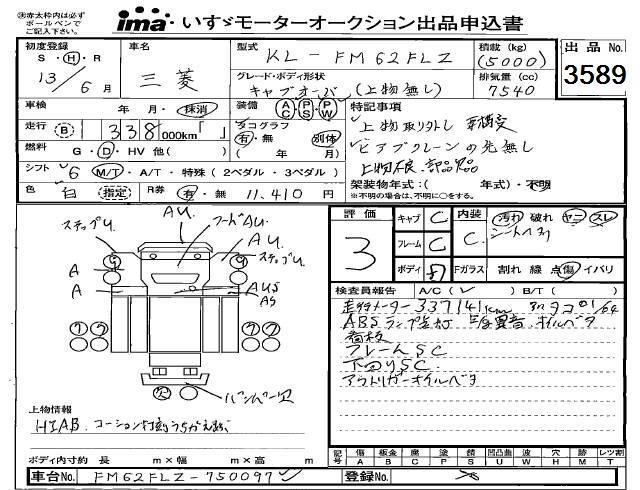 ※赤太枠内は必ず
ボールペンで
ご記入下さい。
ima・いすゞモーターオークション出品申込書
初度登録
S・H・R
13年 6月
車名
三菱
型式
KL-FM62FLZ
積載(kg)
(5000)
出品No.
3589
グレード・ボディ形状
キャブオーバ(上物無し)
排気量(cc)
7540
車検 年 月・抹消
装備 AC PS PW
特記事項
走行 B 1 338,000km「 」
タコグラフ
有・無 別体
( 年 月)
上物取外し
ヒアブクレーンの先無し
燃料 G・D・HV 他( )
シフト 6 M/T・A/T・特殊(2ペダル・3ペダル)
色 白 指定 R券 有・無 11,410円
架装物年式:( 年式)・不明
※不明の場合は、不明に○をする。
評価
3
キャブ C
フレーム C
ボディ
内装 C
Fガラス
汚れ 破れ ヤニ スレ
割れ 線 点傷 イバリ
検査員報告 A/C( ) B/T( )
走行メーター337141km
ABSランプ点灯
看板
フレームSC
下回りSC
アウトリガーオイルベタ
ステップU.
AU.
フードAU.
AU.
ステップU.
A
A
AUS
AS
バンパー欠
上物情報
HIAB.コーション
ボディ内寸約 長 m×幅 m×高 m
記号
傷 A
板金 B
腐 C
塗 P
錆 S
凹凸曲 U
波 W
穴 H
跡 M
レンズ割 T
車台No. FM62FLZ-750097
登録No.